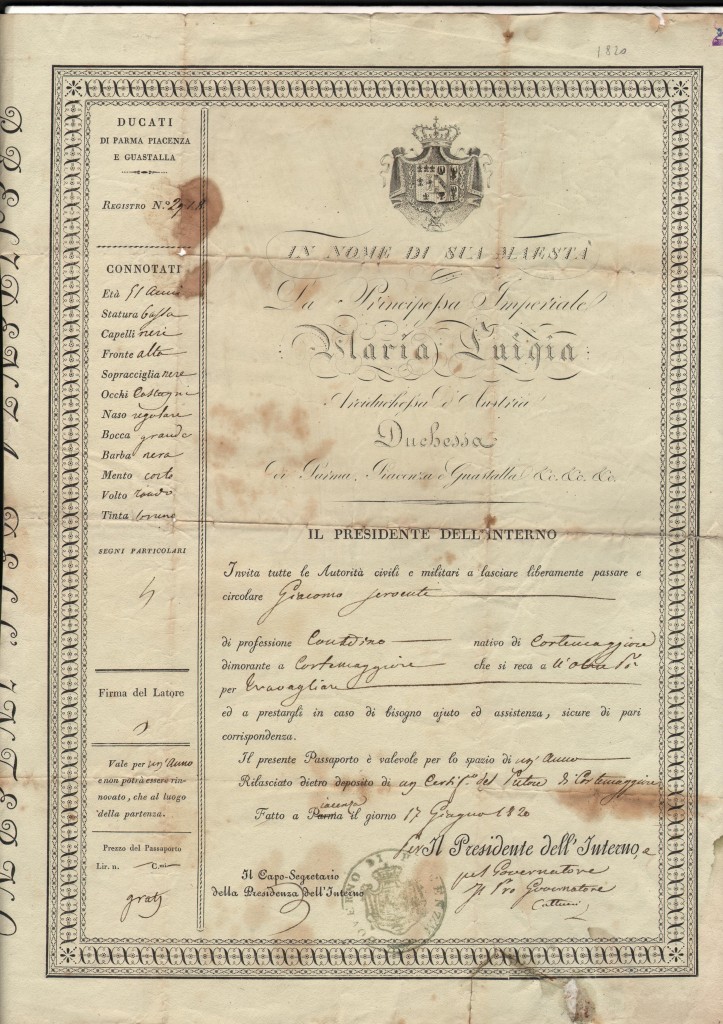 1820
DUCATI
DI PARMA PIACENZA
E GUASTALLA
REGISTRO N.º
CONNOTATI
Età 51 Anni
Statura bassa
Capelli neri
Fronte alta
Sopracciglia nere
Occhi Castagni
Naso regolare
Bocca grande
Barba nera
Mento corto
Volto tondo
Tinta bruno
SEGNI PARTICOLARI
Firma del Latore
Vale per un' Anno
e non potrà essere rin-
novato, che al luogo
della partenza.
Prezzo del Passaporto
Lir. n. C.mi
gratis
IN NOME DI SUA MAESTÀ
La Principessa Imperiale
Maria Luigia
Arciduchessa d'Austria
Duchessa
di Parma, Piacenza e Guastalla &c. &c. &c.
IL PRESIDENTE DELL'INTERNO
Invita tutte le Autorità civili e militari a lasciare liberamente passare e
circolare Giacomo Servente
di professione Contadino nativo di Cortemaggiore
dimorante a Cortemaggiore che si reca a ll'oltre Pò
per travagliare
ed a prestargli in caso di bisogno ajuto ed assistenza, sicure di pari
corrispondenza.
Il presente Passaporto è valevole per lo spazio di un' Anno
Rilasciato dietro deposito di un Certif.º del Pretore di Cortemaggiore
iacenza
Fatto a Parma il giorno 17 Giugno 1820
per Il Presidente dell'Interno, e
pel Governatore
Il Pro Governatore
Il Capo-Segretario
della Presidenza dell'Interno